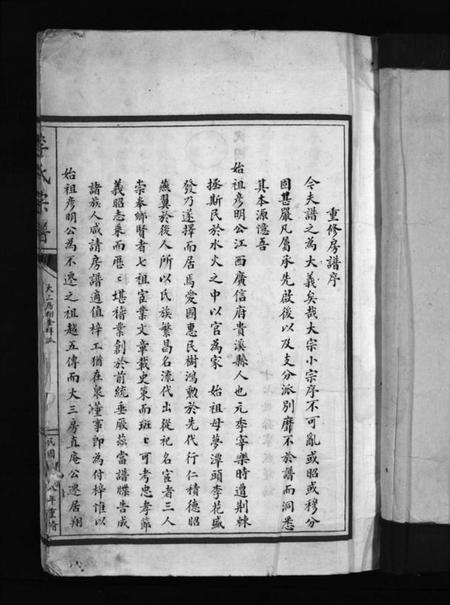 重修房譜序
今夫譜之為大義矣哉大宗小宗序不可亂或昭或穆分
固甚嚴凡屬承先啟後以及支分派別靡不於譜而洞悉
其本源憶吾
始祖彥明公江西廣信府貴溪縣人也元季宰樂時遭荆棘
拯斯民於水火之中以官為家 始祖母夢潭頭李花盛
發乃遂擇而居焉愛國惠民樹鴻勲於先代行仁積德昭
燕翼於後人所以氏族繁昌名流代出從祀名宦者三人
崇奉鄉賢者七祖宦業文章載史策而班ミ可考忠孝節
義昭志乘而歷ミ堪稽業創於前統垂厥茲當譜牒告成
諸族人咸請房譜適值梓工猶在衆懂事即為付梓惟以
始祖彥明公為不遷之祖越五傳而大三房直庵公遷居翔
李氏宗譜
大三房翔
民國 八年重修